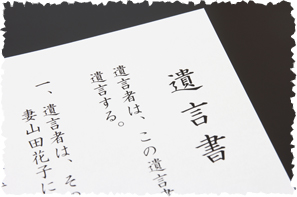 遺言書
遺言者は、この遺言書
遺言する。
一、遺言者は、そ
妻山田花子に